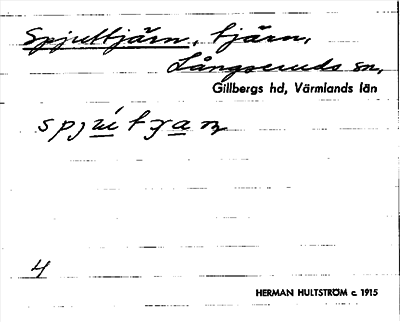 Spjuttjärn, tjärn,
Långseruds sn,
Gillbergs hd, Värmlands län
spjútjaṇ
4
HERMAN HULTSTRÖM c. 1915